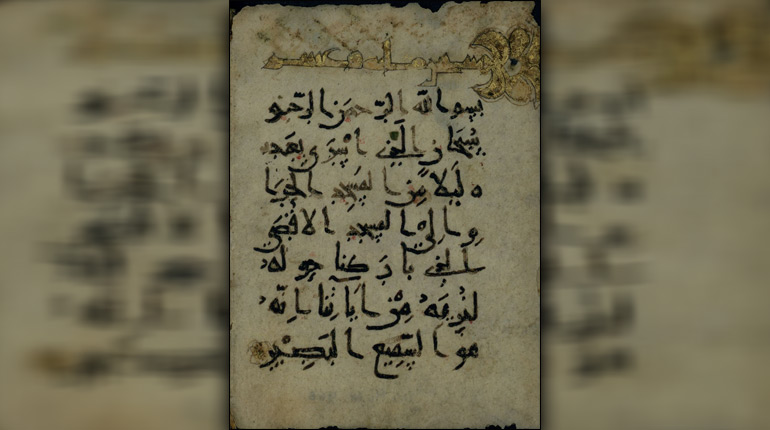 مائة وعشر
بِسْمِ اللَّهِ الرَّحْمَنِ الرَّحِيمِ
سُبْحَانَ الَّذِي أَسْرَى بِعَبْدِ
هِ لَيْلًا مِنَ الْمَسْجِدِ الْحَرَا
مِ إِلَى الْمَسْجِدِ الْأَقْصَى
الَّذِي بَارَكْنَا حَوْلَهُ
لِنُرِيَهُ مِنْ آيَاتِنَا إِنَّهُ
هُوَ السَّمِيعُ الْبَصِيرُ